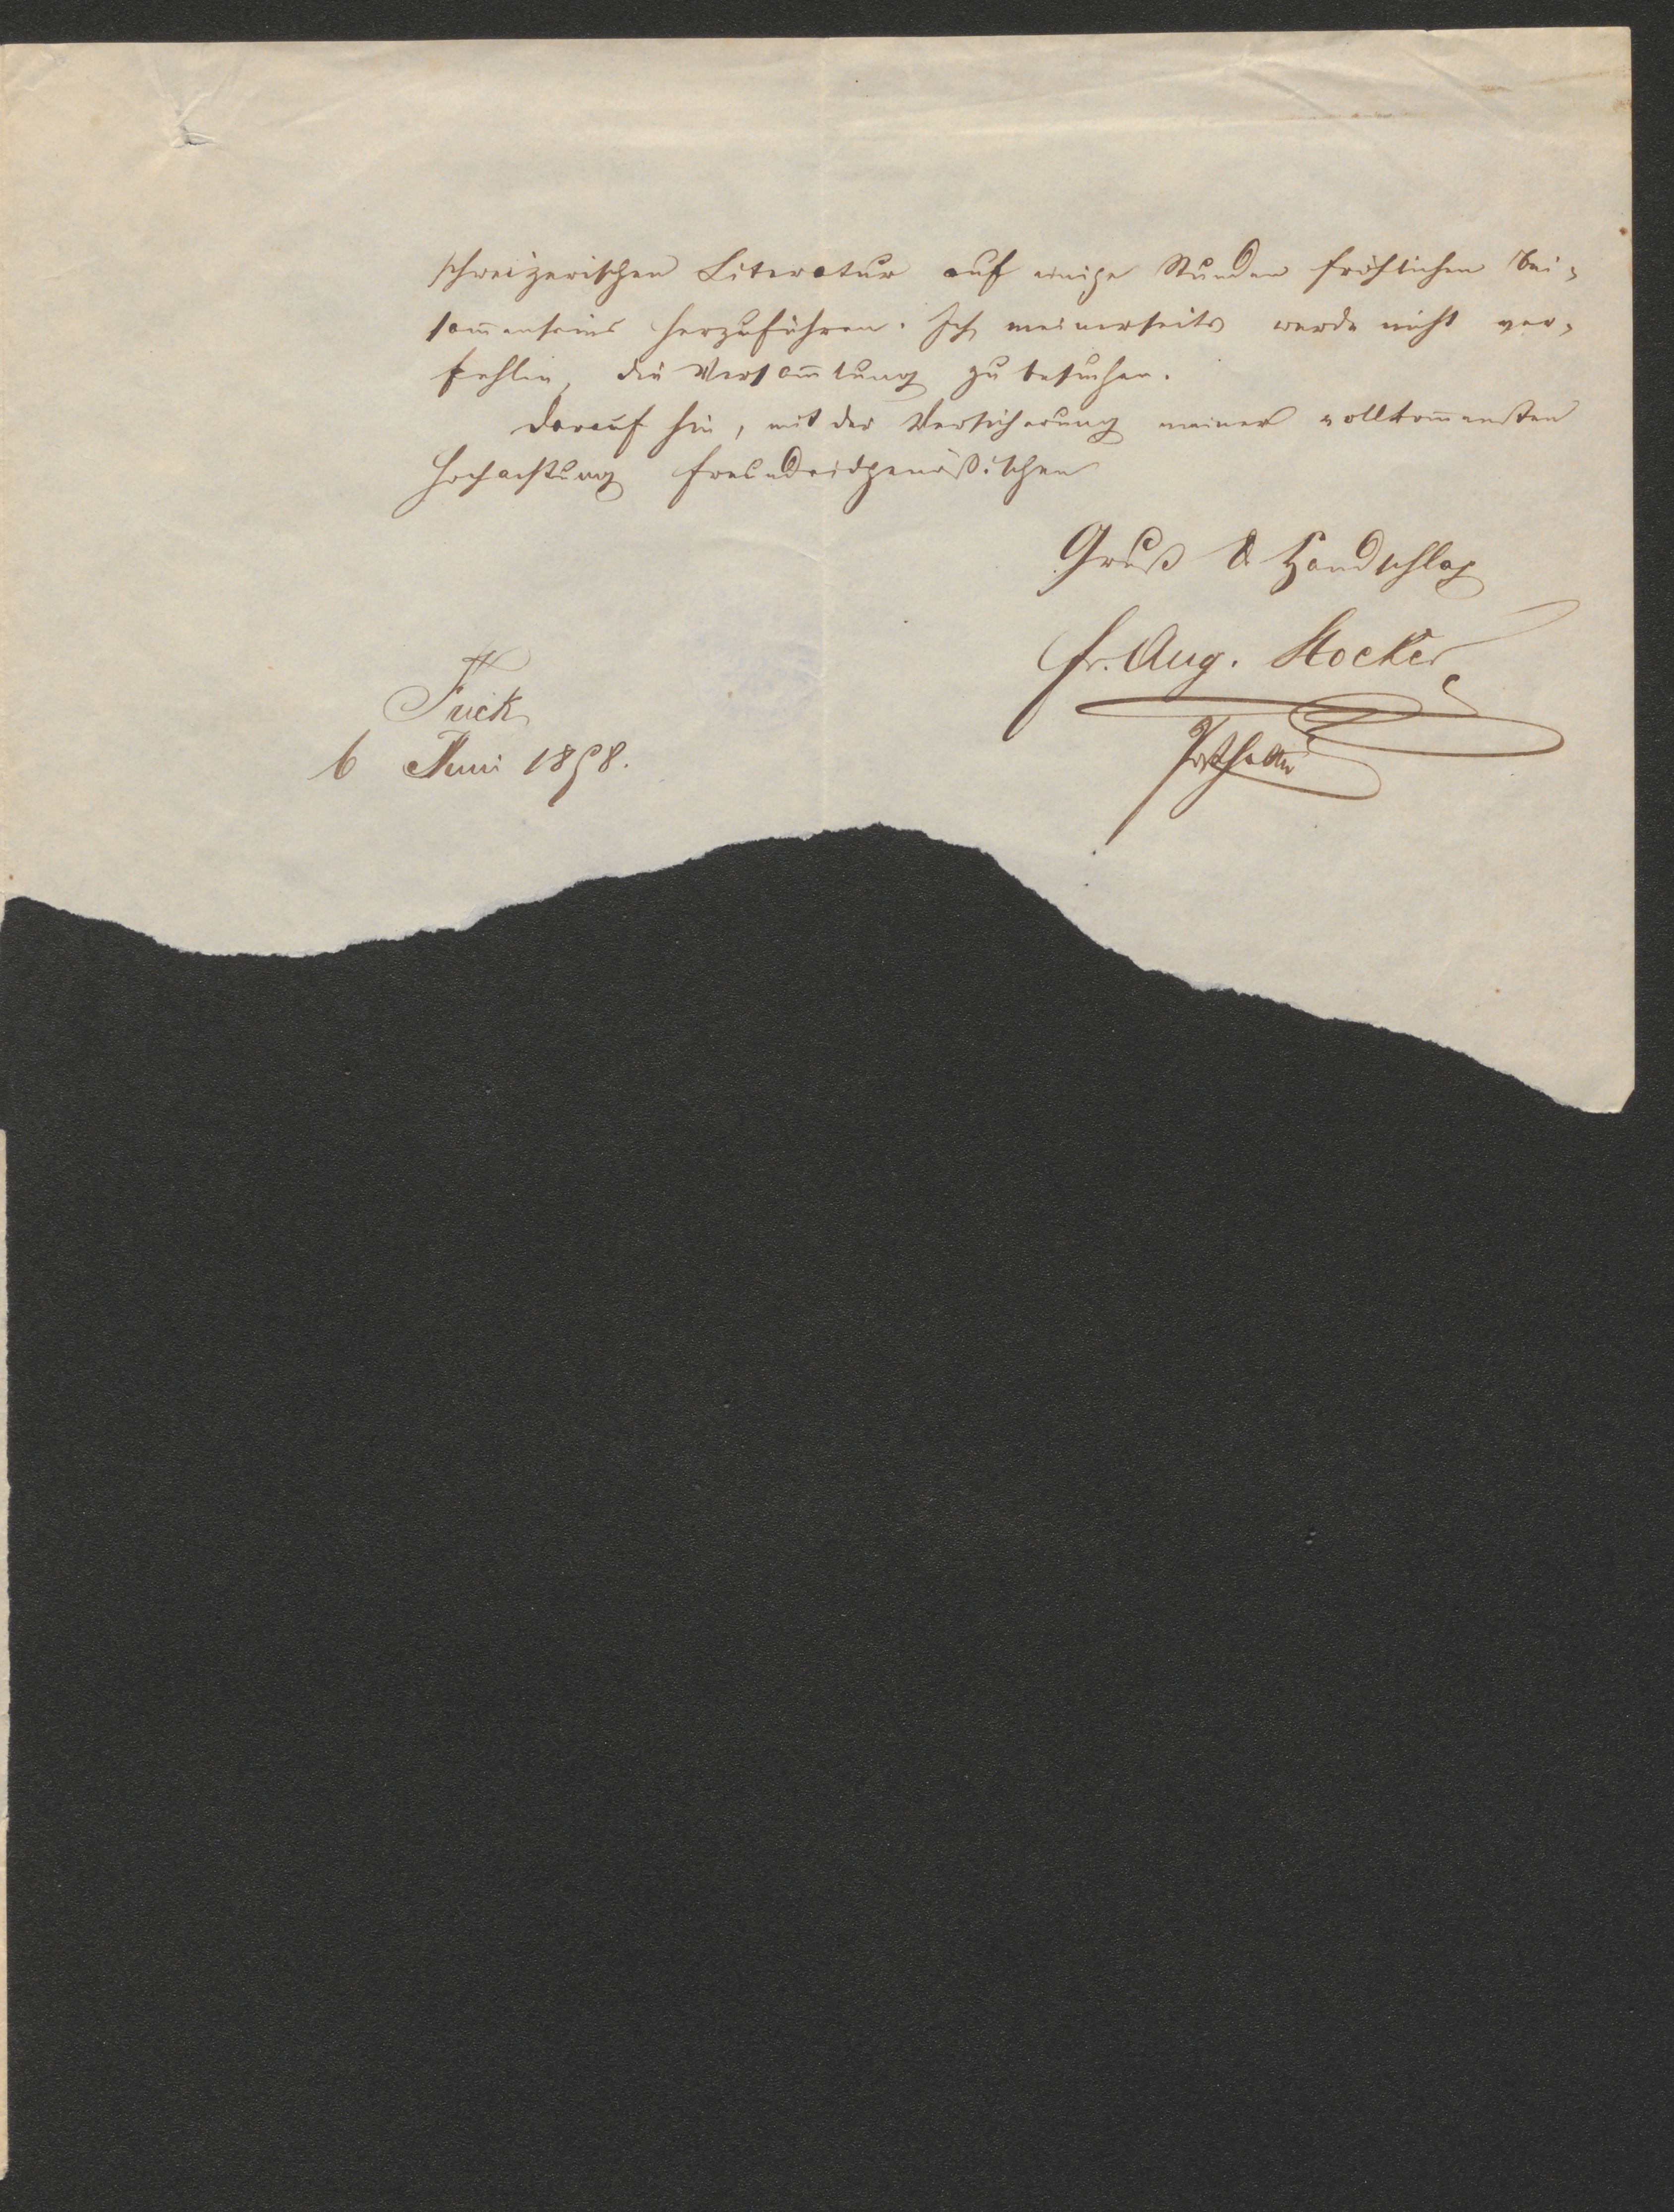 schweizerischen Literatur auf einige Stunden fröhlichen Bei-
sam̅enseins herzuführen. Ich meinerseits werde nicht ver-
fehlen, die Versam̅lung zu besuchen.
Darauf hin, mit der Versicherung meiner vollkom̅ensten
Hochachtung freundeidgenößischen
Gruß & Handschlag
Fr. Aug. Stocker
Posthalter
Frick
6 Juni 1858.